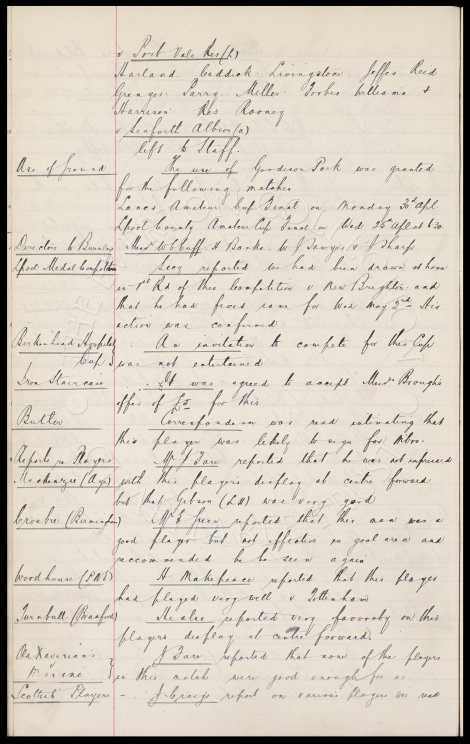 v Port Vale Res (h)
Harland Caddick Livingstone Jeffes Reid
Grenyer Parry Miller Forbes Williams &
Harrison Res Rooney
v Seaforth Albion (a)
left to Staff.
Use of Ground The use of Goodison Park was granted
for the following matches
Lancs Amateur Cup Final on Monday 30th Apl
Lpool County Amateur Cup Final on Wed 25th Apl at 6.30
Directors to Burnley Messrs W C Cuff A Banks W J Sawyer & J Sharp
Lpool Medal Competition Secy reported we had been drawn at home
in 1st Rd of this Competition v New Brighton and
that he had fixed same for Wed May 2nd His
action was confirmed
Birkenhead Hospital An invitation to compete for this Cup
Cup was not entertained
Iron Staircase It was agreed to accept Messrs Brough's
offer of for this
Butler Correspondence was read intimating that
this player was likely to sign for
Reports re Players Mr J Bare reported that he was not impressed
Mackenzie (Ayr) with this players display at centre forward
but that Gibson (LH) was very good
Crosbie (Birmingham) Mr E Green reported that this man was a
good player but not effective in goal area and
recommended he be seen again
Woodhouse (PNE) H Makepeace reported that this player
had played very well v Tottenham
Turnbull (Bradford) He also reported very favorably on this
players display at centre forward.
Old Xaverians J Bare reported that none of the players
in this match were good enough for us
Scottish Players J Craig's report on various players was read